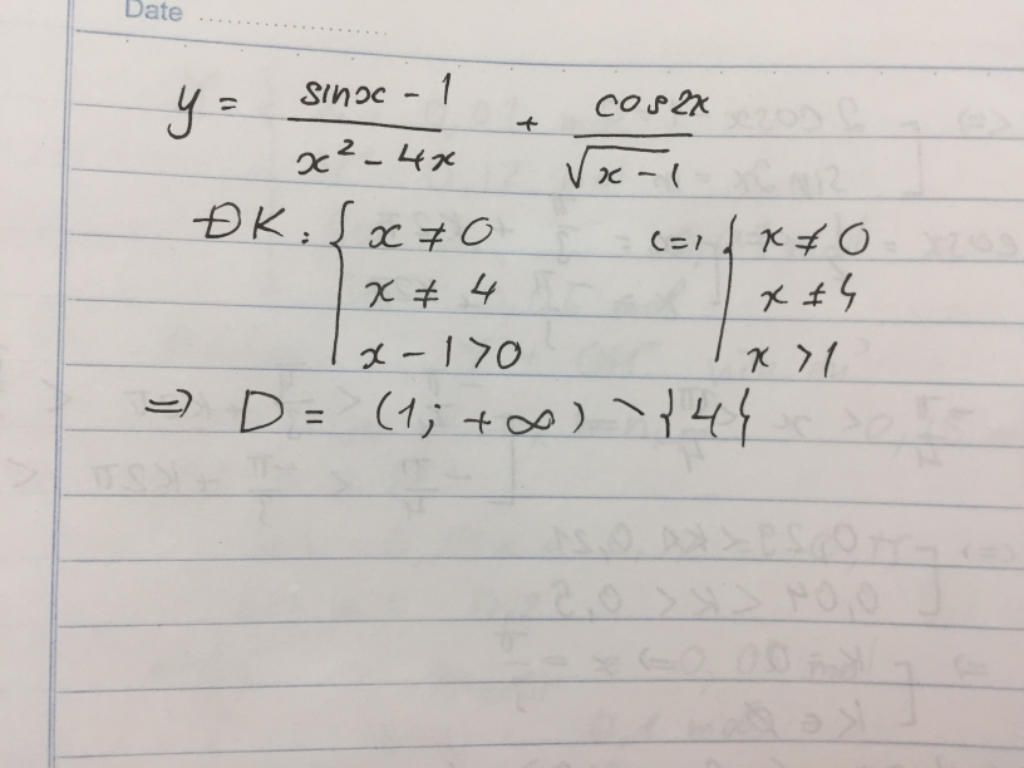 Date
y = \frac{sinx - 1}{x² - 4x} + \frac{cos2x}{\sqrt{x - 1}}
ĐK: { x ≠ 0 <=> { x ≠ 0
x ≠ 4 x ≠ 4
x - 1 > 0 x > 1
=> D = (1; +∞) \ {4}